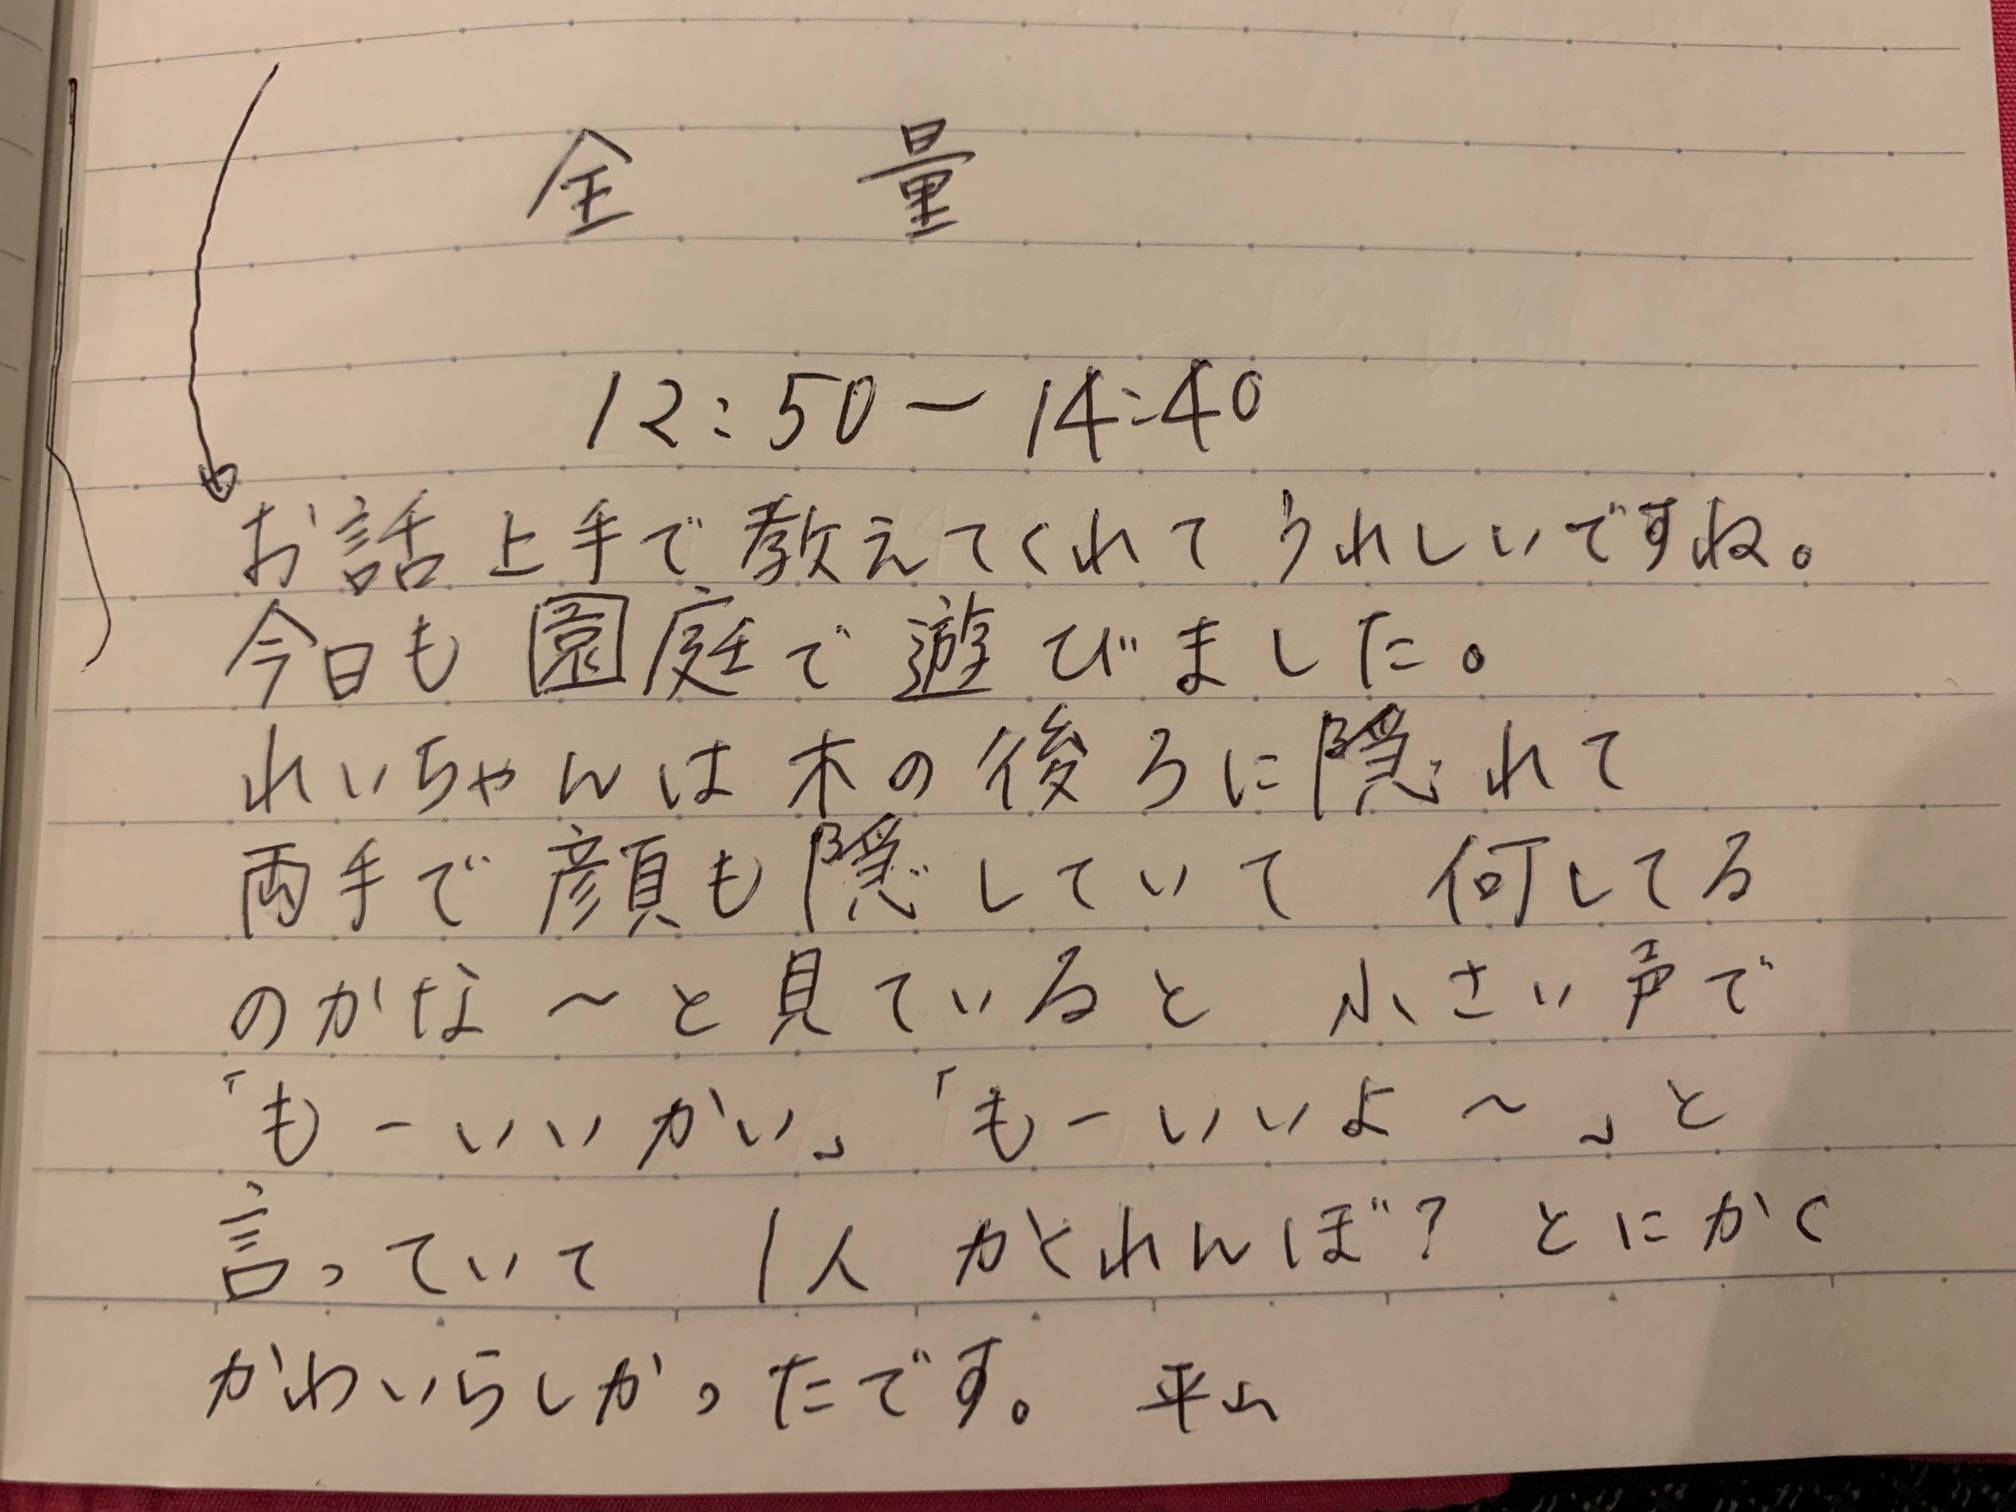 全 量
12:50〜14:40
お話上手で教えてくれてうれしいですね。
今日も園庭で遊びました。
れいちゃんは木の後ろに隠れて
両手で顔も隠していて 何してる
のかな〜と見ていると 小さい声で
「もーいいかい」「もーいいよ〜」と
言っていて 1人かくれんぼ? とにかく
かわいらしかったです。 平山